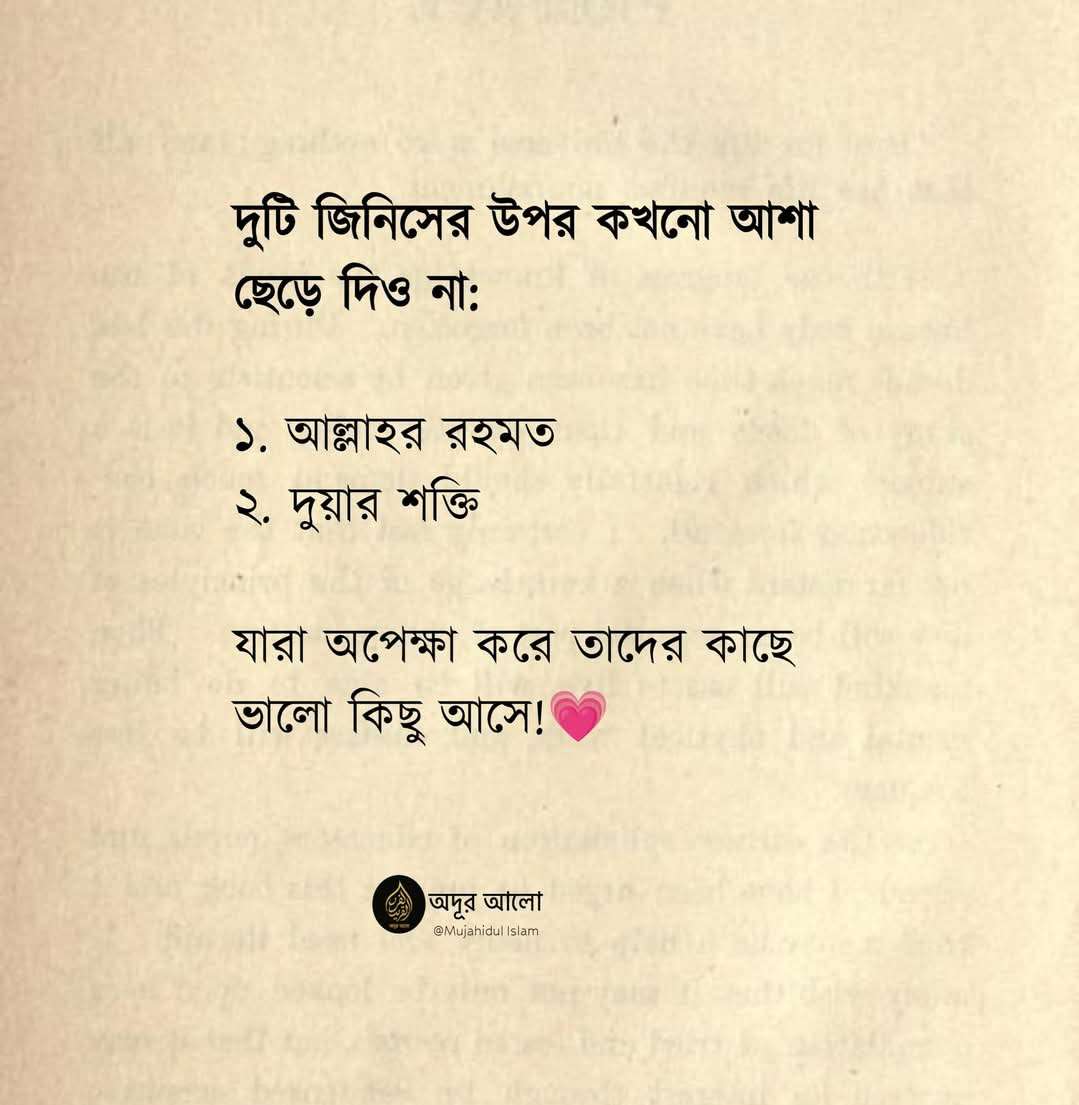 দুটি জিনিসের উপর কখনো আশা
ছেড়ে দিও না:
১. আল্লাহর রহমত
২. দুয়ার শক্তি
যারা অপেক্ষা করে তাদের কাছে
ভালো কিছু আসে!💗
অদূর আলো
@Mujahidul Islam